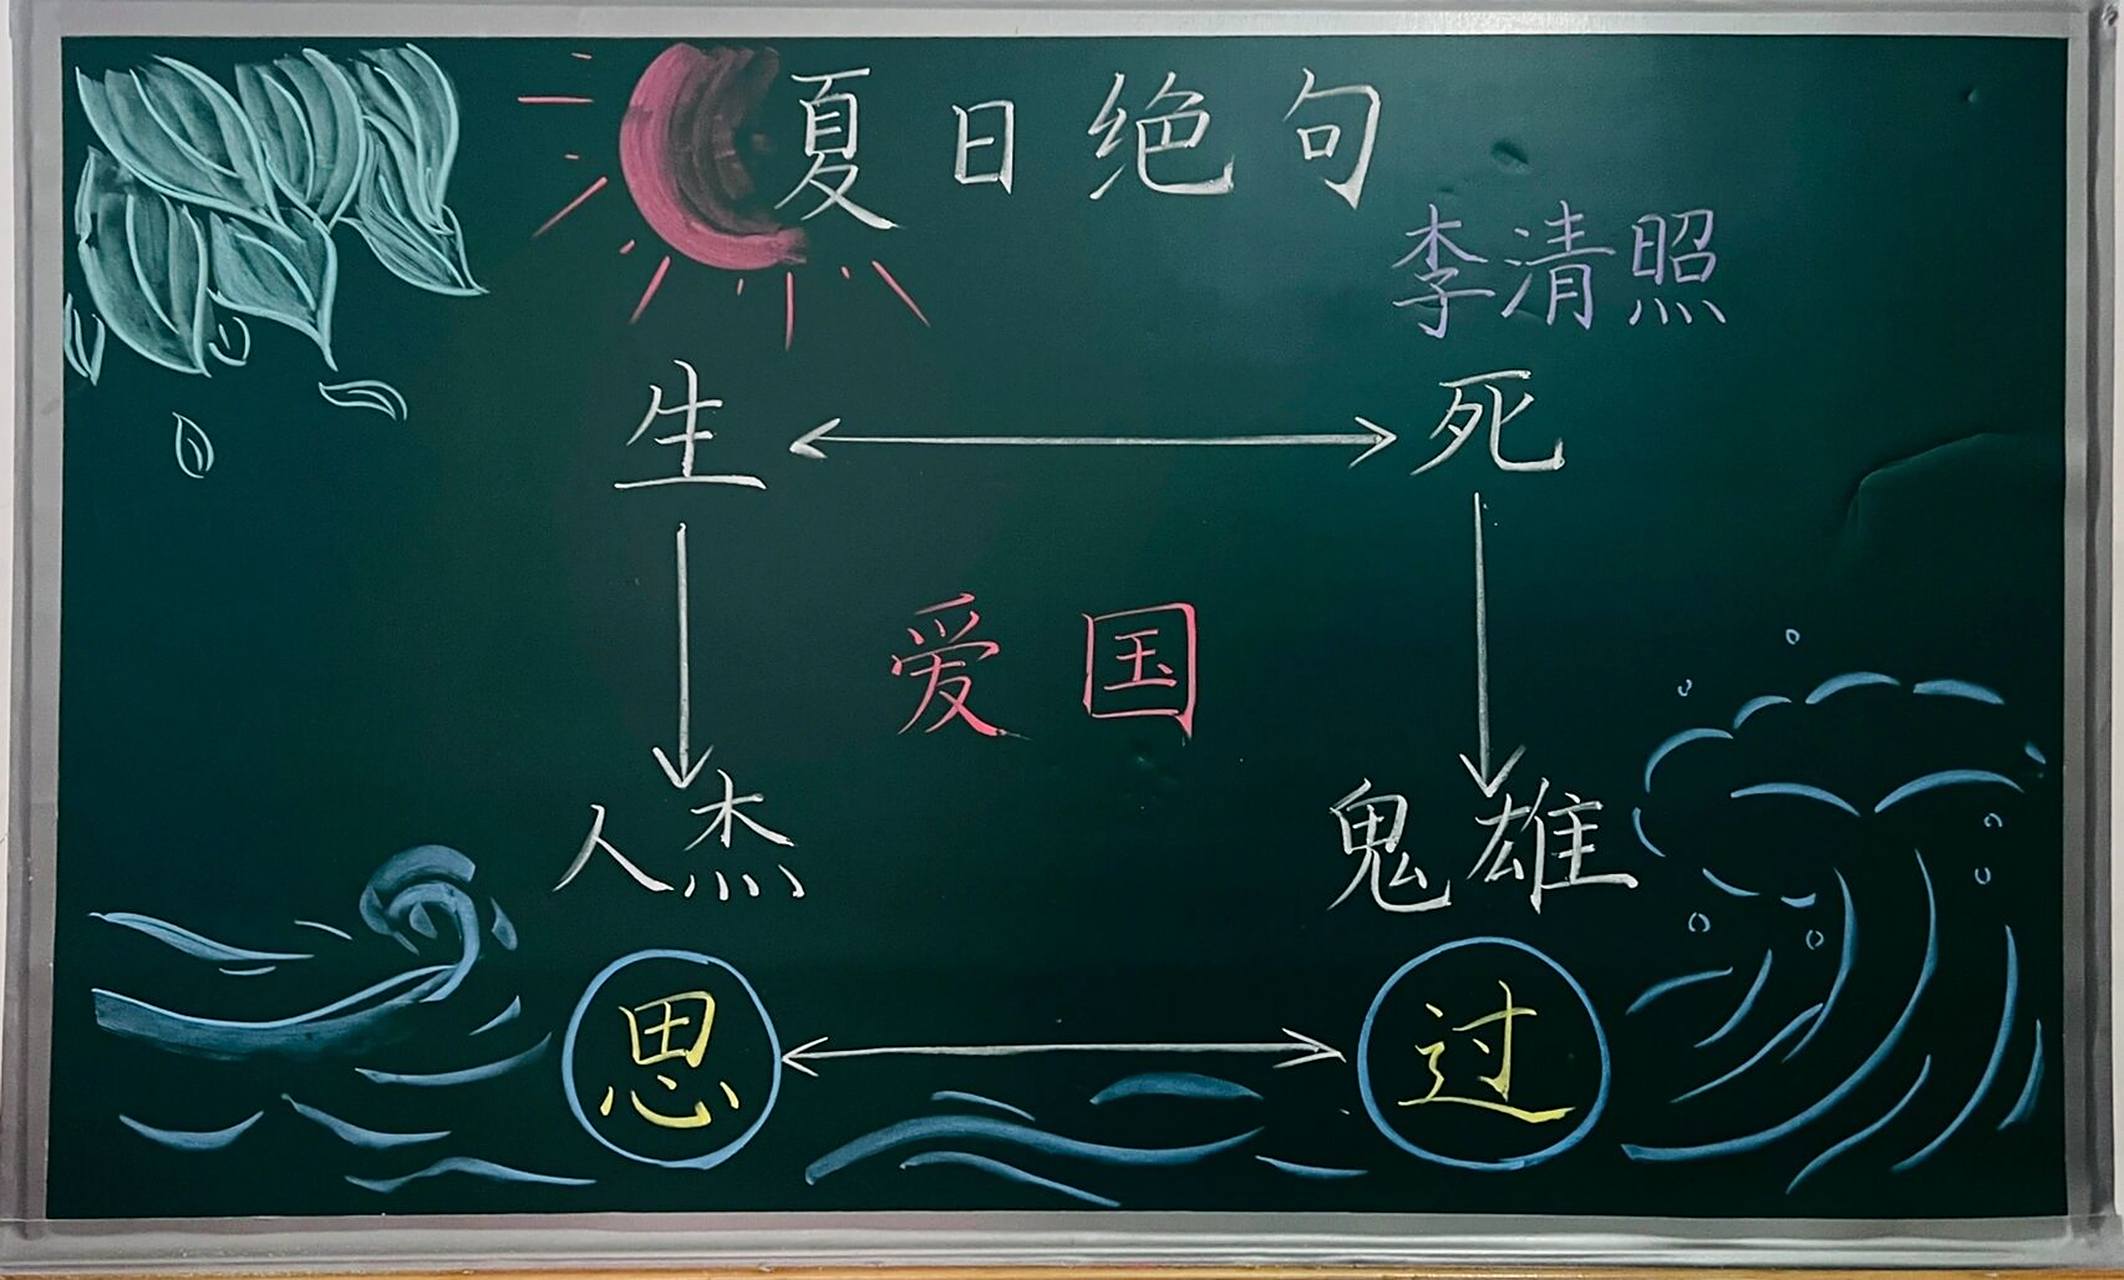 夏日绝句
李清照
生 死
爱国
人杰 鬼雄
思 过